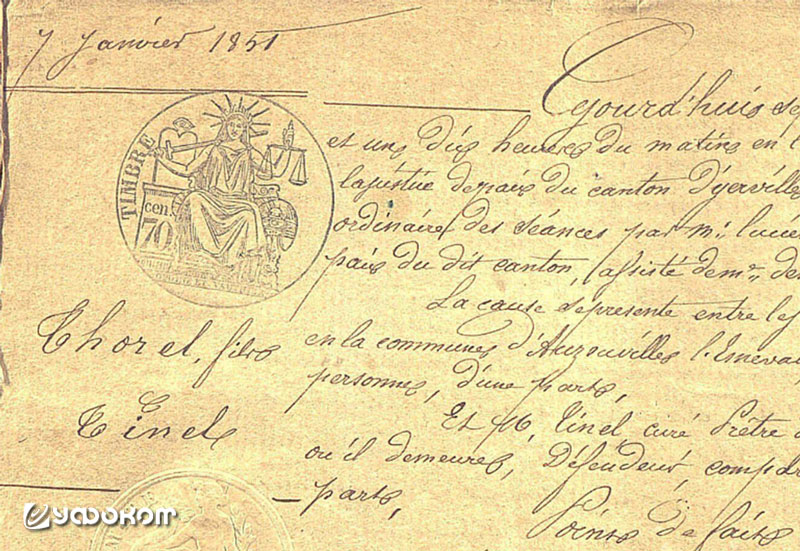 7 Janvier 1851
Cejourd'huis sep
et uns dix heures du matins en l
la justice de paix du canton d'yervilles
ordinaires des séances par mr. lucien
paix du dit canton, assisté de mr. de
La cause se présente entre les
en la communes d'Auzouvilles l'Esneval
personnes, d'une parts,
Et M, Tinel curé Prêtre
où il demeures, Défendeur, compar
parts,
Points de faits
TIMBRE
cen.
70
Thorel, fils
C
Tinel
уфоком